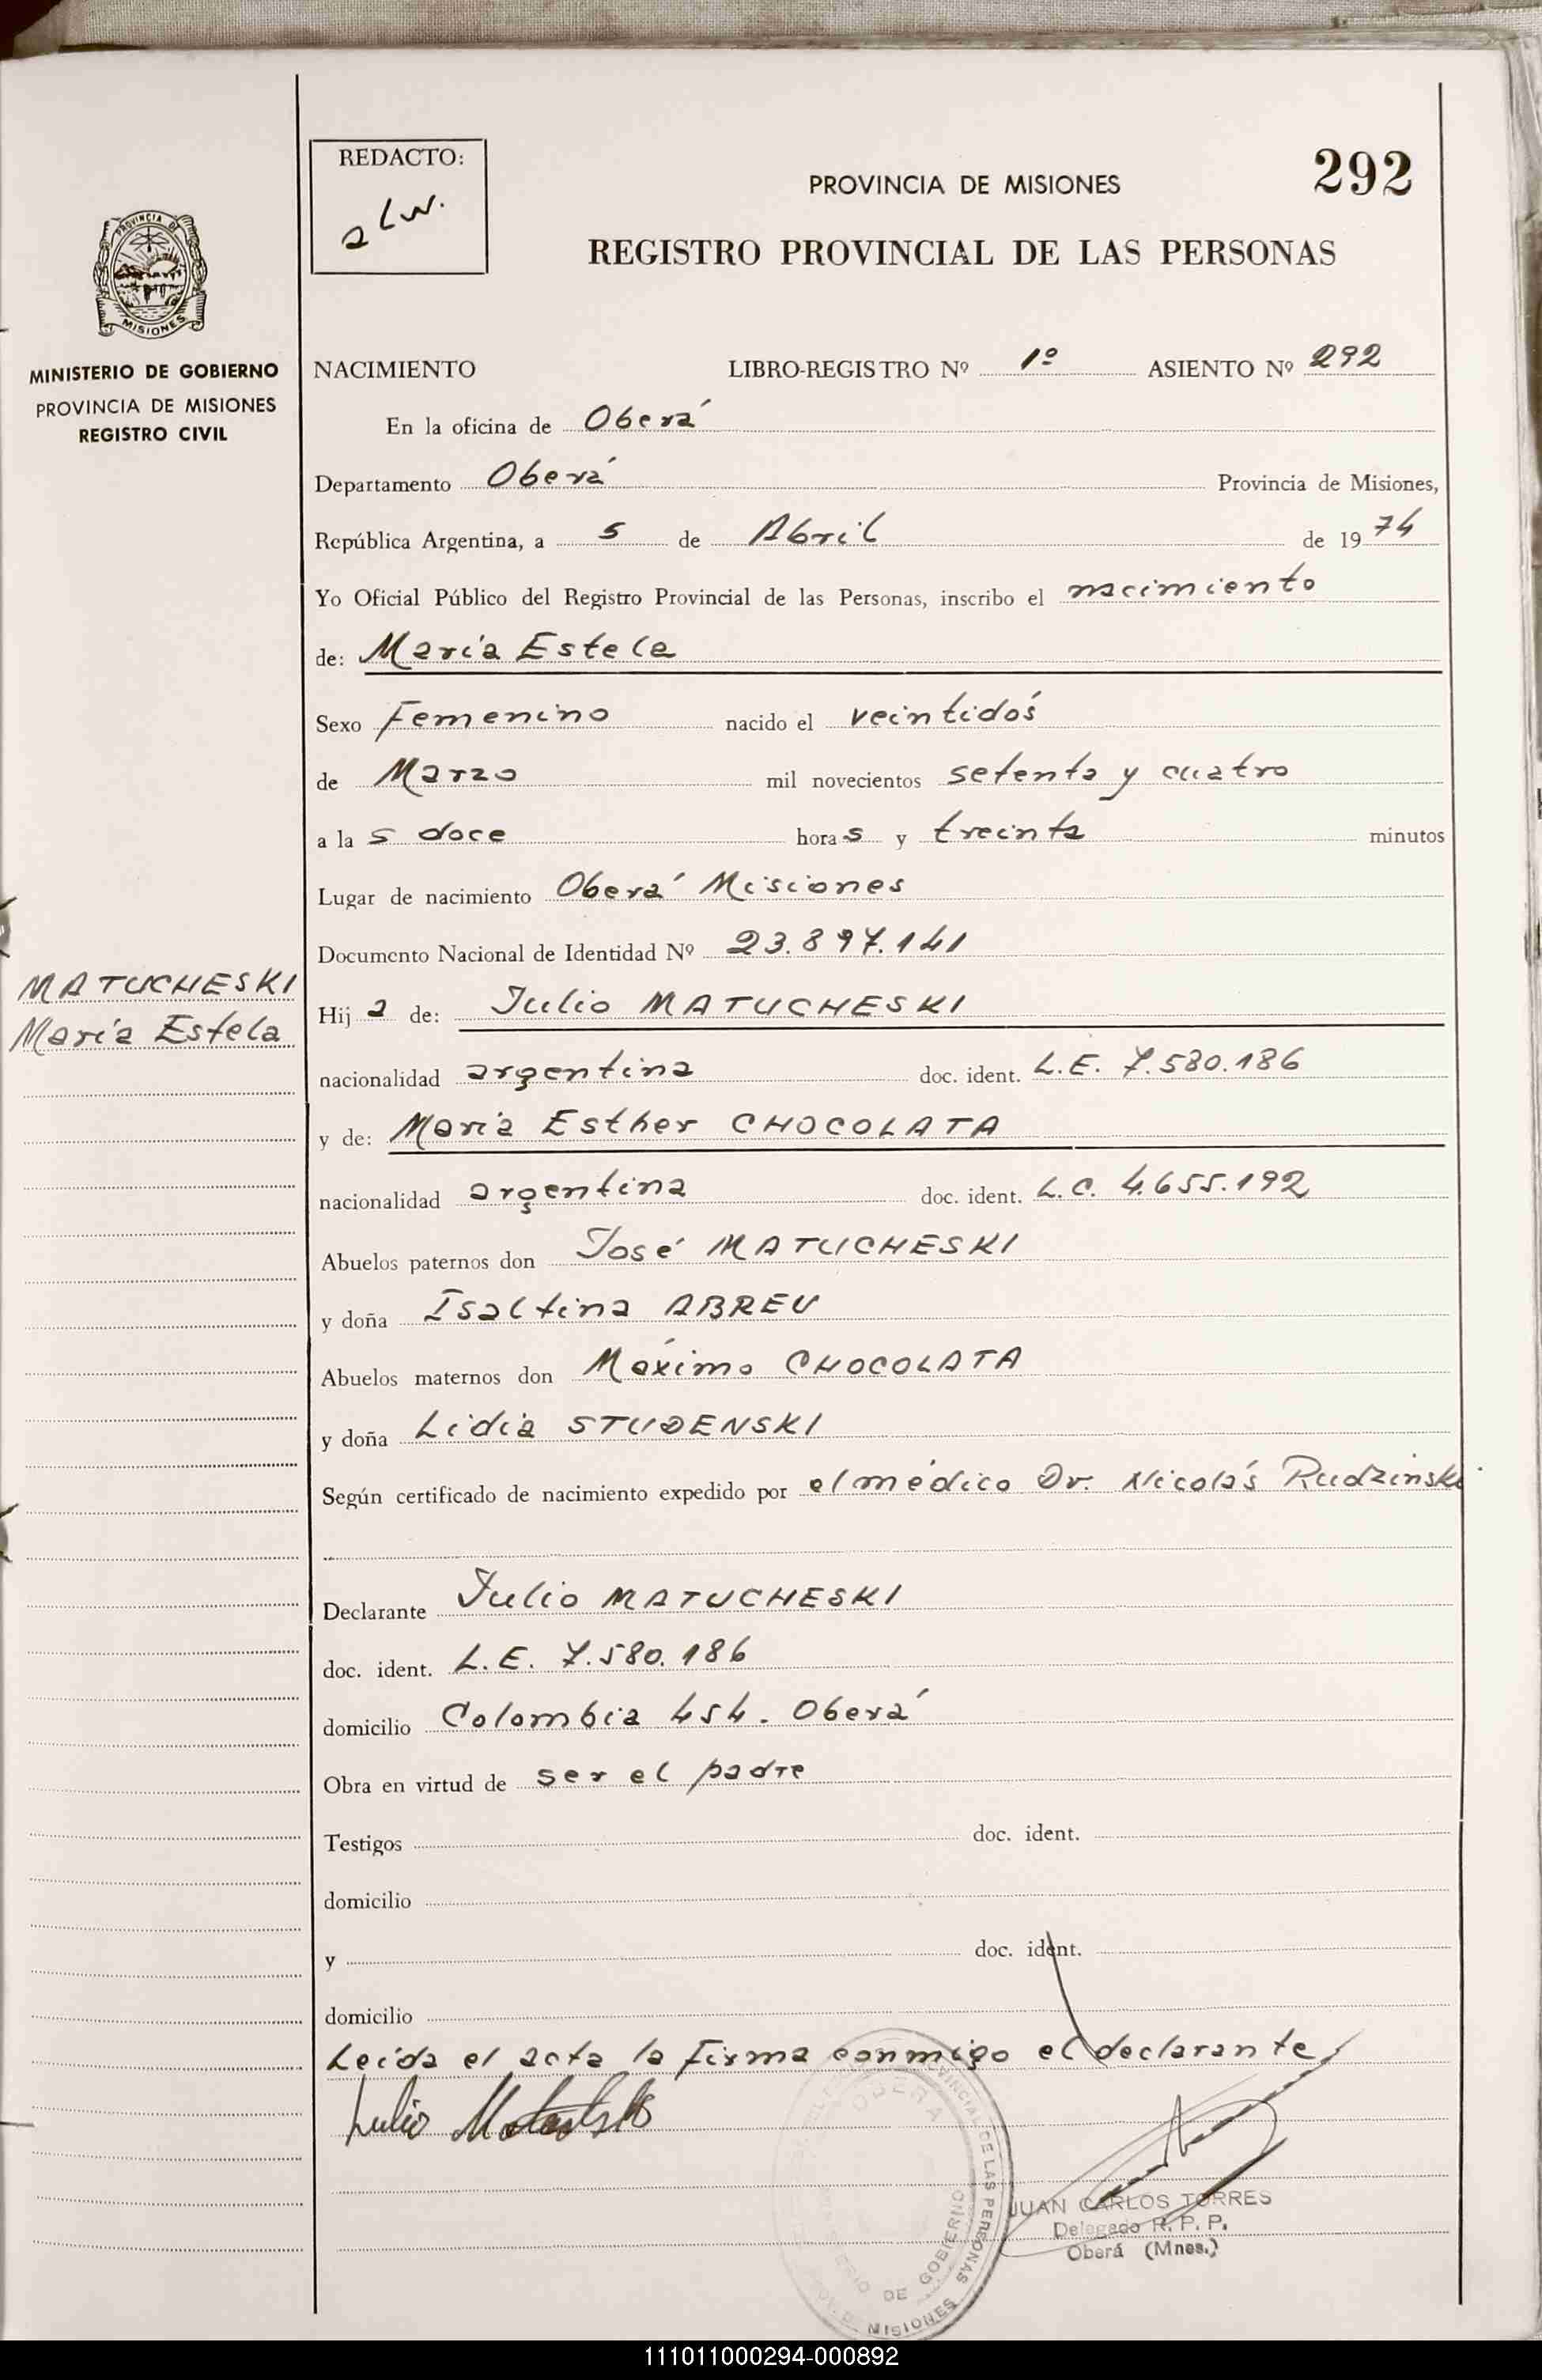 REDACTO:
PROVINCIA DE MISIONES
292
REGISTRO PROVINCIAL DE LAS PERSONAS
PROVINCIA DE
MISIONES
MINISTERIO DE GOBIERNO
PROVINCIA DE MISIONES
REGISTRO CIVIL
NACIMIENTO LIBRO-REGISTRO Nº 1º ASIENTO Nº 292
En la oficina de Oberá
Departamento Oberá Provincia de Misiones,
República Argentina, a 5 de Abril de 1974
Yo Oficial Público del Registro Provincial de las Personas, inscribo el nacimiento
de: María Estela
Sexo Femenino nacido el veintidós
de Marzo mil novecientos setenta y cuatro
a la s doce horas y treinta minutos
Lugar de nacimiento Oberá Misiones
Documento Nacional de Identidad Nº 23.897.141
MATUCHESKI
María Estela
Hija de: Julio MATUCHESKI
nacionalidad argentina doc. ident. L.E. 7.580.186
y de: María Esther CHOCOLATA
nacionalidad argentina doc. ident. L.C. 4.655.192
Abuelos paternos don José MATUCHESKI
y doña Isaltina ABREU
Abuelos maternos don Máximo CHOCOLATA
y doña Lidia STUDENSKI
Según certificado de nacimiento expedido por el médico Dr. Nicolás Rudzinski
Declarante Julio MATUCHESKI
doc. ident. L.E. 7.580.186
domicilio Colombia 454. Oberá
Obra en virtud de ser el padre
Testigos doc. ident.
domicilio
y doc. ident.
domicilio
Leída el acta la firma conmigo el declarante
Julio
OBERA
PROVINCIAL DE LAS PERSONAS
MINISTERIO DE GOBIERNO
MISIONES
JUAN CARLOS TORRES
Delegado R. P. P.
Oberá (Mnes.)
111011000294-000892